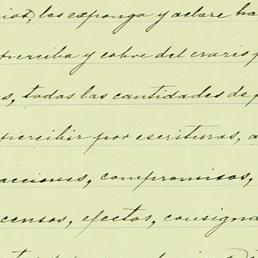 los exponga y aclare ha
perciba y cobre del erario p
s, todas las cantidades de
percibir por escrituras, o
acciones, compromisos,
censos, efectos, consigna